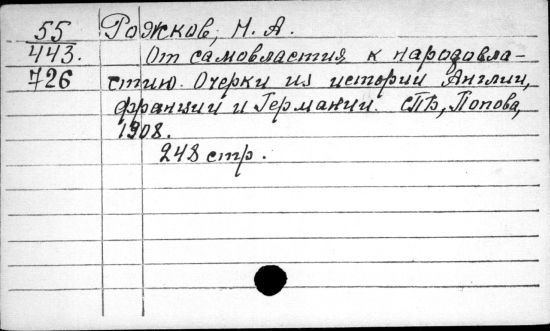 55 Рожков, Н. А.
443. От самовластия к народовла-
726 стию. Очерки из истории Англии,
Франции и Германии. СПБ, Попова,
1908.
248 стр.